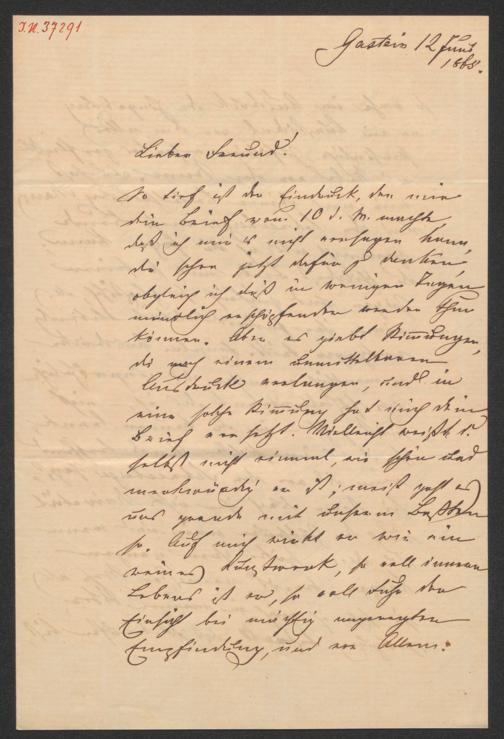 I.N. 37291
Gastein 12 Juni
1868.
Lieber Freund!
So tief ist der Eindruck, den mir
dein Brief vom 10 d. M. machte
daß ich mir es nicht versagen kann,
dir schon jetzt dafür zu danken
obgleich ich dieß in wenigen Tagen
mündlich erschöpfender werde thun
können. Aber es giebt Stimmungen,
die nach einem unmittelbaren
Ausdrucke verlangen, und in
eine solche Stimmung hat mich dein
Brief versetzt. Vielleicht weißt du
selbst nicht einmal, wie schön und
merkwürdig er ist; meist geht es
uns gerade mit unserem Besten
so. Auf mich wirkt er wie ein
reines Kunstwerk, so voll inneren
Lebens ist er, so voll der
Einsicht bei mächtig angeregter
Empfindung, und vor Allem: